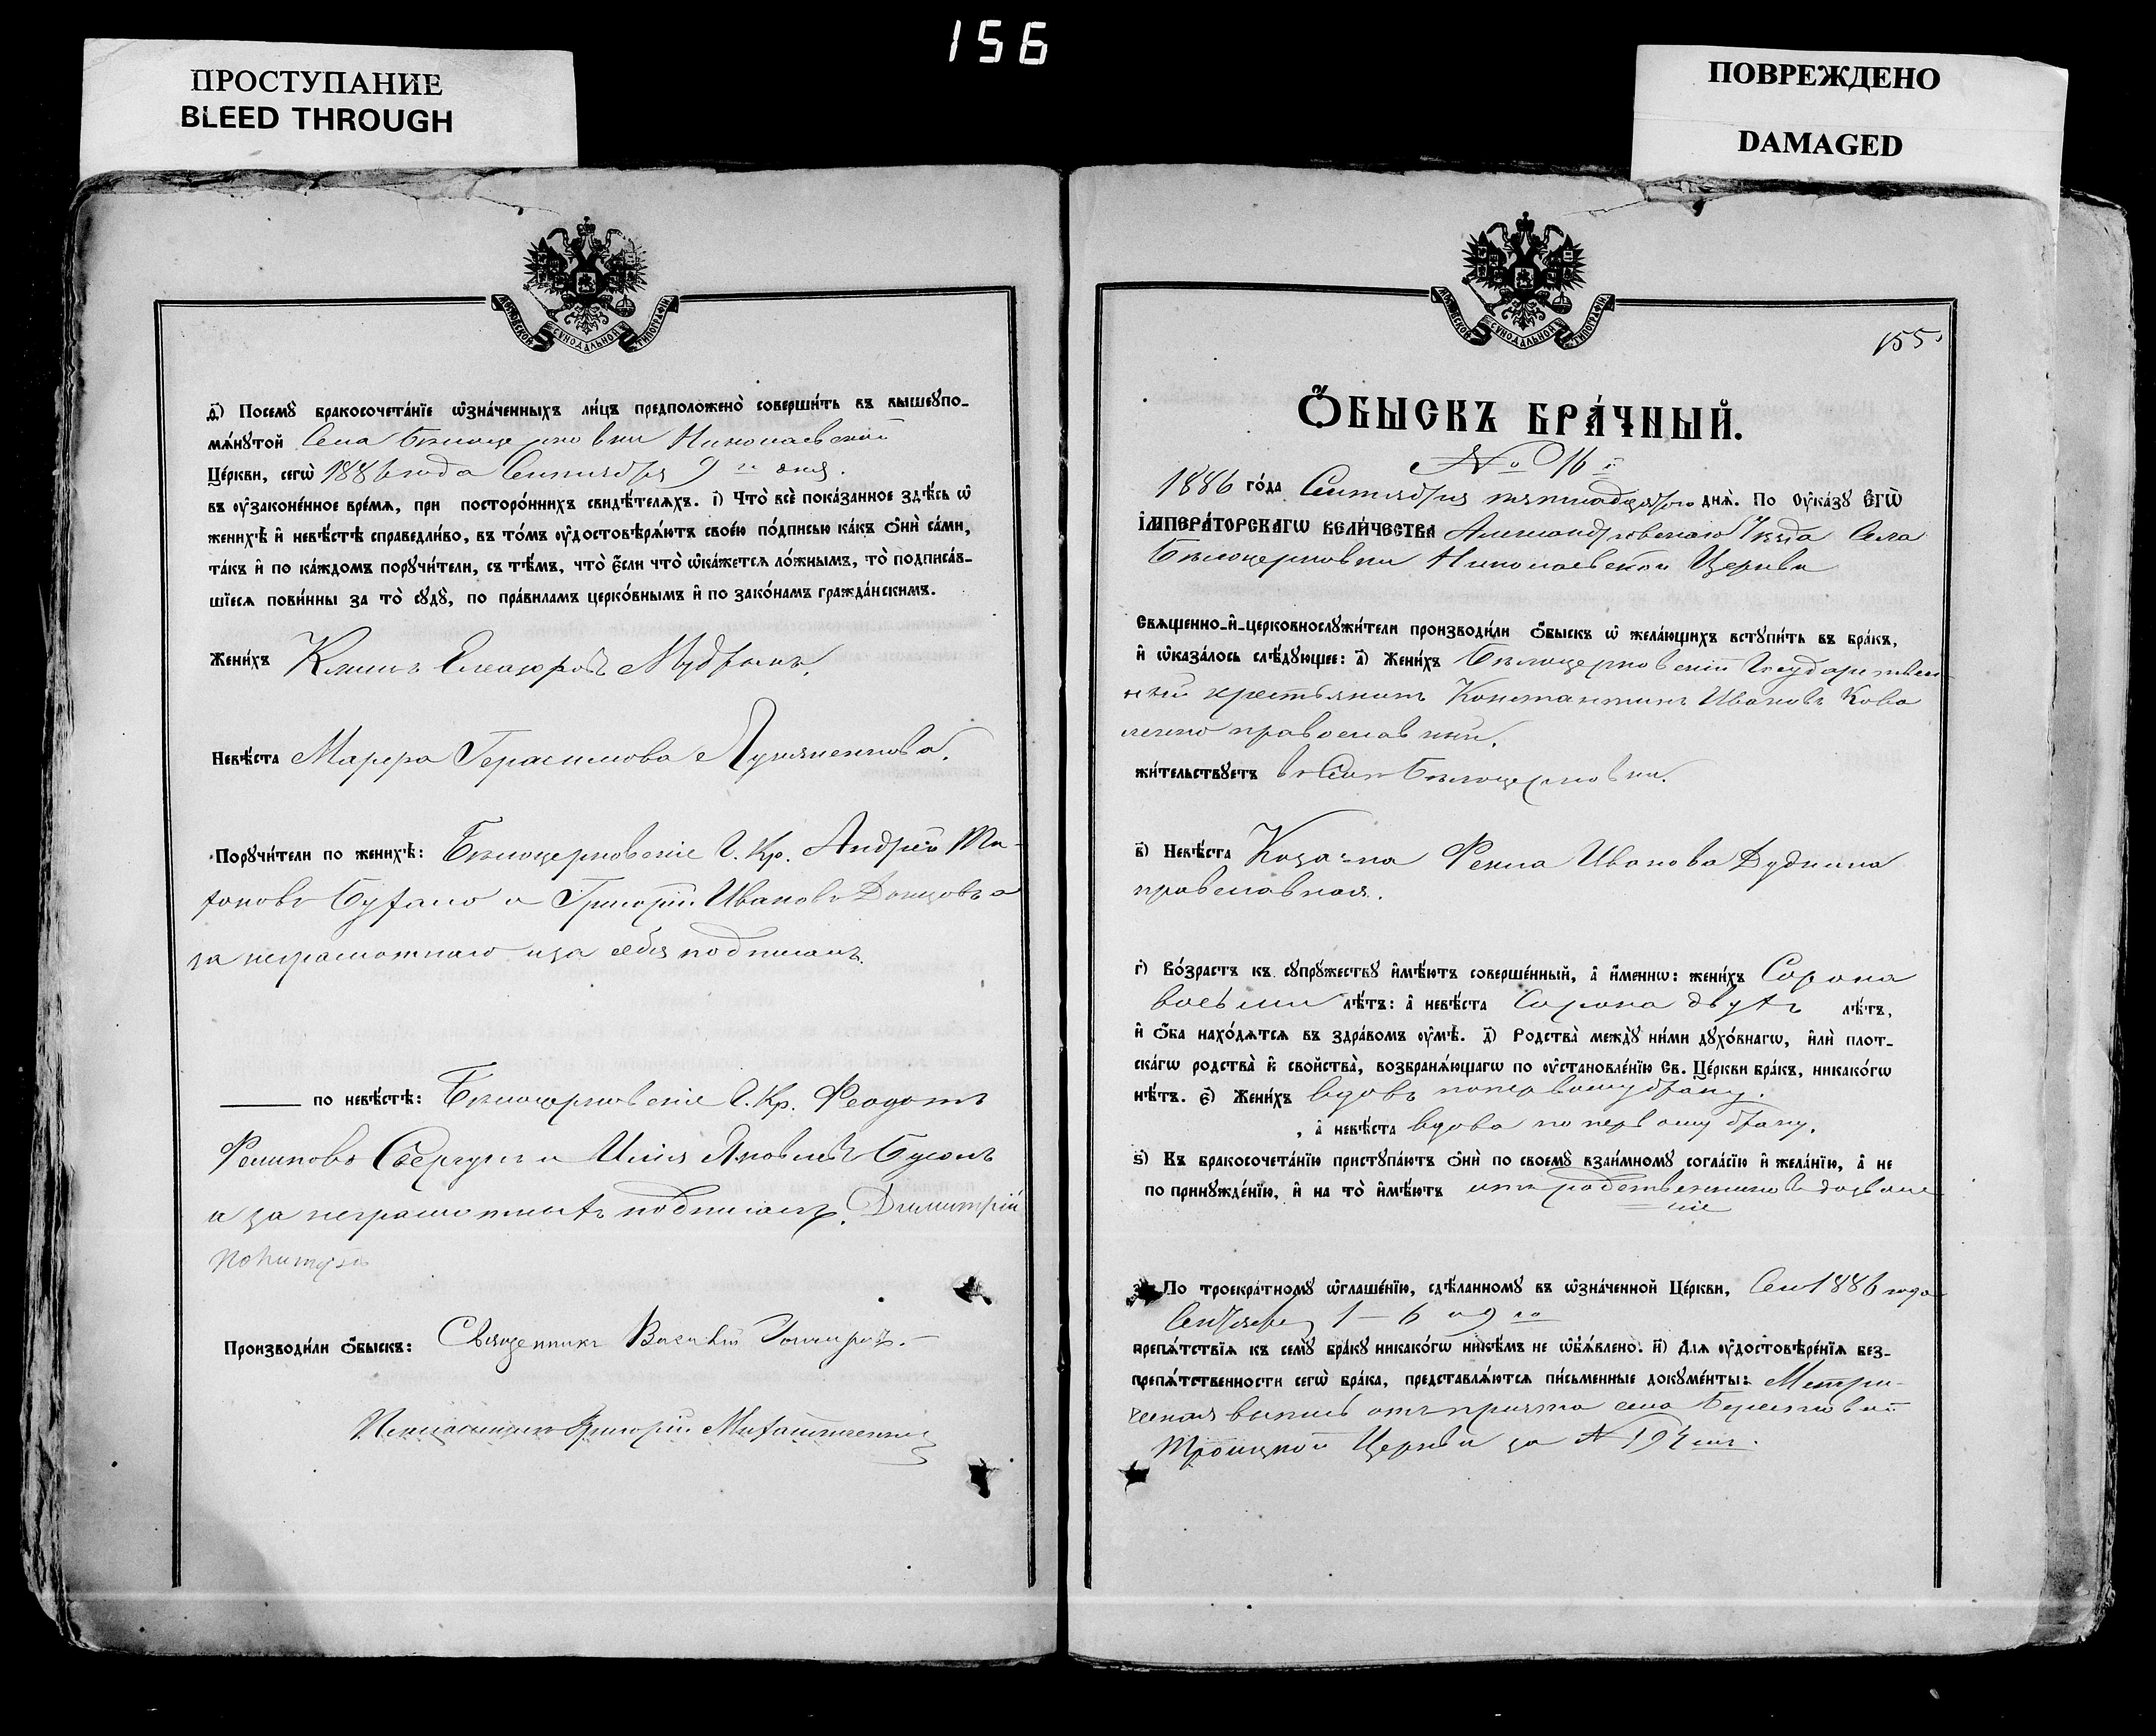 156
ПРОСТУПАНИЕ
BLEED THROUGH
ПОВРЕЖДЕНО
DAMAGED
МОСКОВСКОЙ СУНОДАЛЬНОЙ ТИПОГРАФІИ
д҃) Посемꙋ̀ бракосочета́нїе ѡ҆зна́ченныхъ ли́цъ предположено̀ соверши́ть въ вышеꙋпо-
мѧ́нꙋтой Села Бѣлоцерковки Николаевской
Це́ркви, сегѡ̀ 1886 года Сентября 9го дня.
въ ᲂу҆зако́ненное вре́мѧ, при посторо́ннихъ свидѣ́телѧхъ. і҃) Что̀ всѐ пока́занное здѣ́сь ѡ҆
женихѣ̀ и҆ невѣ́стѣ справедли́во, въ то́мъ ᲂу҆достовѣрѧ́ютъ свое́ю по́дписью ка́къ ѻ҆нѝ са́ми,
та́къ и҆ по ка́ждомъ порꙋчи́тели, съ тѣ́мъ, что̀ є҆́сли что̀ ѡ҆ка́жетсѧ ло́жнымъ, то̀ подписа́в-
шїесѧ пови́нны за то̀ сꙋдꙋ̀, по пра́виламъ церко́внымъ и҆ по зако́намъ гражда́нскимъ.
Жени́хъ Климъ Елеазаровъ Мудракъ.
Невѣ́ста Марфа Герасимова Лукяненкова.
Порꙋчи́тели по женихѣ̀: Бѣлоцерковскіе Г. Кр. Андрей
и Григорій Ивановъ
за неграмотнаго и за себя подписалъ
по невѣ́стѣ: Бѣлоцерковскіе Г. Кр. Феодотъ
и Илія Яковлевъ
и за неграмотныхъ подписалъ. Димитрій
Производи́ли ѻ҆́быскъ: Священникъ Василій
Псаломщикъ Григорій
МОСКОВСКОЙ СУНОДАЛЬНОЙ ТИПОГРАФІИ
155
Ѻ҆́БЫСКЪ БРА́ЧНЫЙ.
№ 16й
1886 го́да Сентября пятнадцятого днѧ̀. По ᲂу҆ка́зꙋ Є҆ГѠ̀
І҆МПЕРА́ТОРСКАГѠ ВЕЛИ́ЧЕСТВА Александровскаго Уѣзда Села
Бѣлоцерковки Николаевской Церкви
Свѧщенно-и҆-церковнослꙋжи́тели производи́ли ѻ҆́быскъ ѡ҆ жела́ющихъ встꙋпи́ть въ бра́къ,
и҆ ѡ҆каза́лось слѣ́дꙋющее: а҃) Жени́хъ Бѣлоцерковскій Государствен-
ный крестьянинъ Константинъ Ивановъ Кова
ленко православный.
жи́тельствꙋетъ въ Селѣ Бѣлоцерковки.
в҃) Невѣ́ста Козачка Фекла Иванова Дудкина
православная.
г҃) Во́зрастъ къ сꙋпрꙋ́жествꙋ и҆мѣ́ютъ соверше́нный, а҆ и҆́меннѡ: жени́хъ Сорока
восьми лѣ́тъ: а҆ невѣ́ста Сорока двухъ лѣ́тъ,
и҆ ѻ҆́ба нахо́дѧтсѧ въ здра́вомъ ᲂу҆мѣ̀. д҃) Родства̀ междꙋ̀ ни́ми дꙋхо́внагѡ, и҆лѝ плот-
ска́гѡ родства̀ и҆ сво́йства̀, возбранѧ́ющагѡ по ᲂу҆становле́нїю Св. Це́ркви бра́къ, никако́гѡ
нѣ́тъ. є҃) Жени́хъ вдовъ по первому браку.
, а҆ невѣ́ста вдова по первому браку.
ѕ҃) Къ бракосочета́нїю пристꙋпа́ютъ ѻ҆нѝ по своемꙋ̀ взаи́мномꙋ согла́сїю и҆ жела́нїю, а҆ не
по принꙋжде́нїю, и҆ на то̀ и҆мѣ́ютъ отъ родственниковъ дозволе-
ніе
По троекра́тномꙋ ѡ҆глаше́нїю, сдѣ́ланномꙋ въ ѡ҆зна́ченной Це́ркви, Сего 1886 года
Сентября 1 – 6 и 9го
препѧ́тствїѧ къ семꙋ̀ бра́кꙋ никако́гѡ никѣ́мъ не ѡ҆б̾ѧ́влено. и҃) Длѧ ᲂу҆достовѣре́нїѧ без-
препѧ́тственности сегѡ̀ бра́ка, представлѧ́ютсѧ пи́сьменные докꙋме́нты: Метри-
ческая выпись отъ причта села
Троицкой Церкви за № 194мъ.